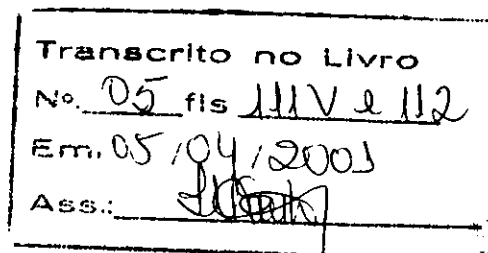 Transcrito no Livro
Nº. 05 fls 111V e 112
Em, 05/04/2001
Ass.: